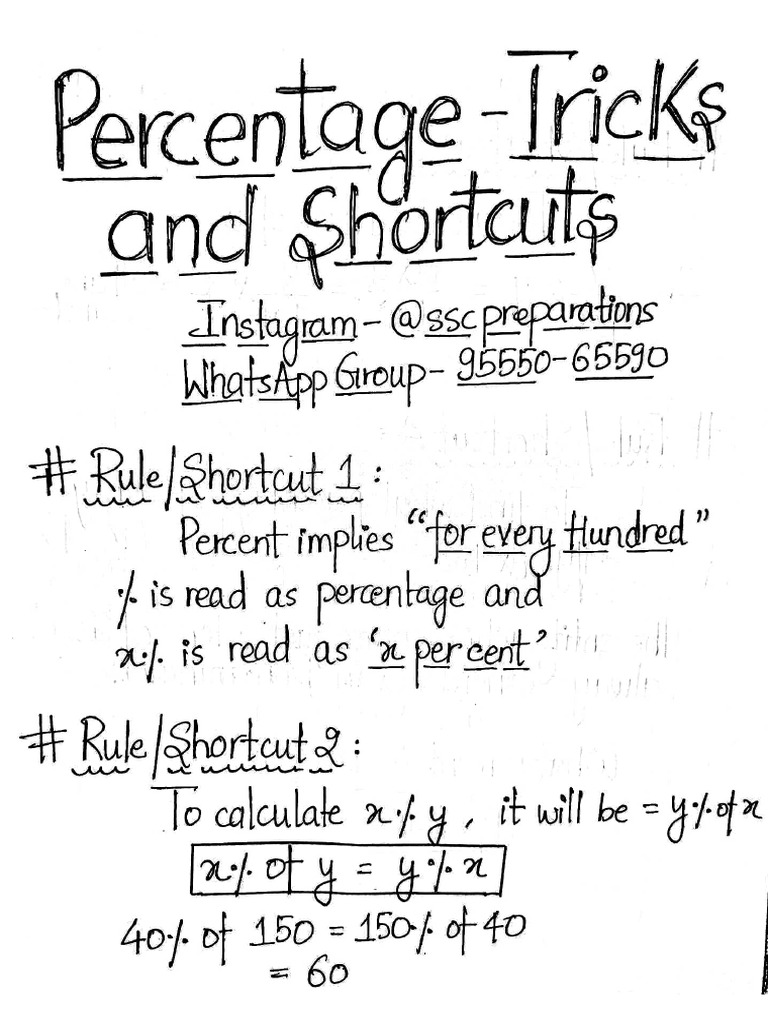 Percentage - Tricks
and Shortcuts
Instagram - @sscpreparations
WhatsApp Group - 95550-65590
# Rule/Shortcut 1 :
Percent implies "for every Hundred"
% is read as percentage and
x% is read as 'x per cent'
# Rule/Shortcut 2 :
To calculate x% y, it will be = y% of x
x% of y = y% x
40% of 150 = 150% of 40
= 60